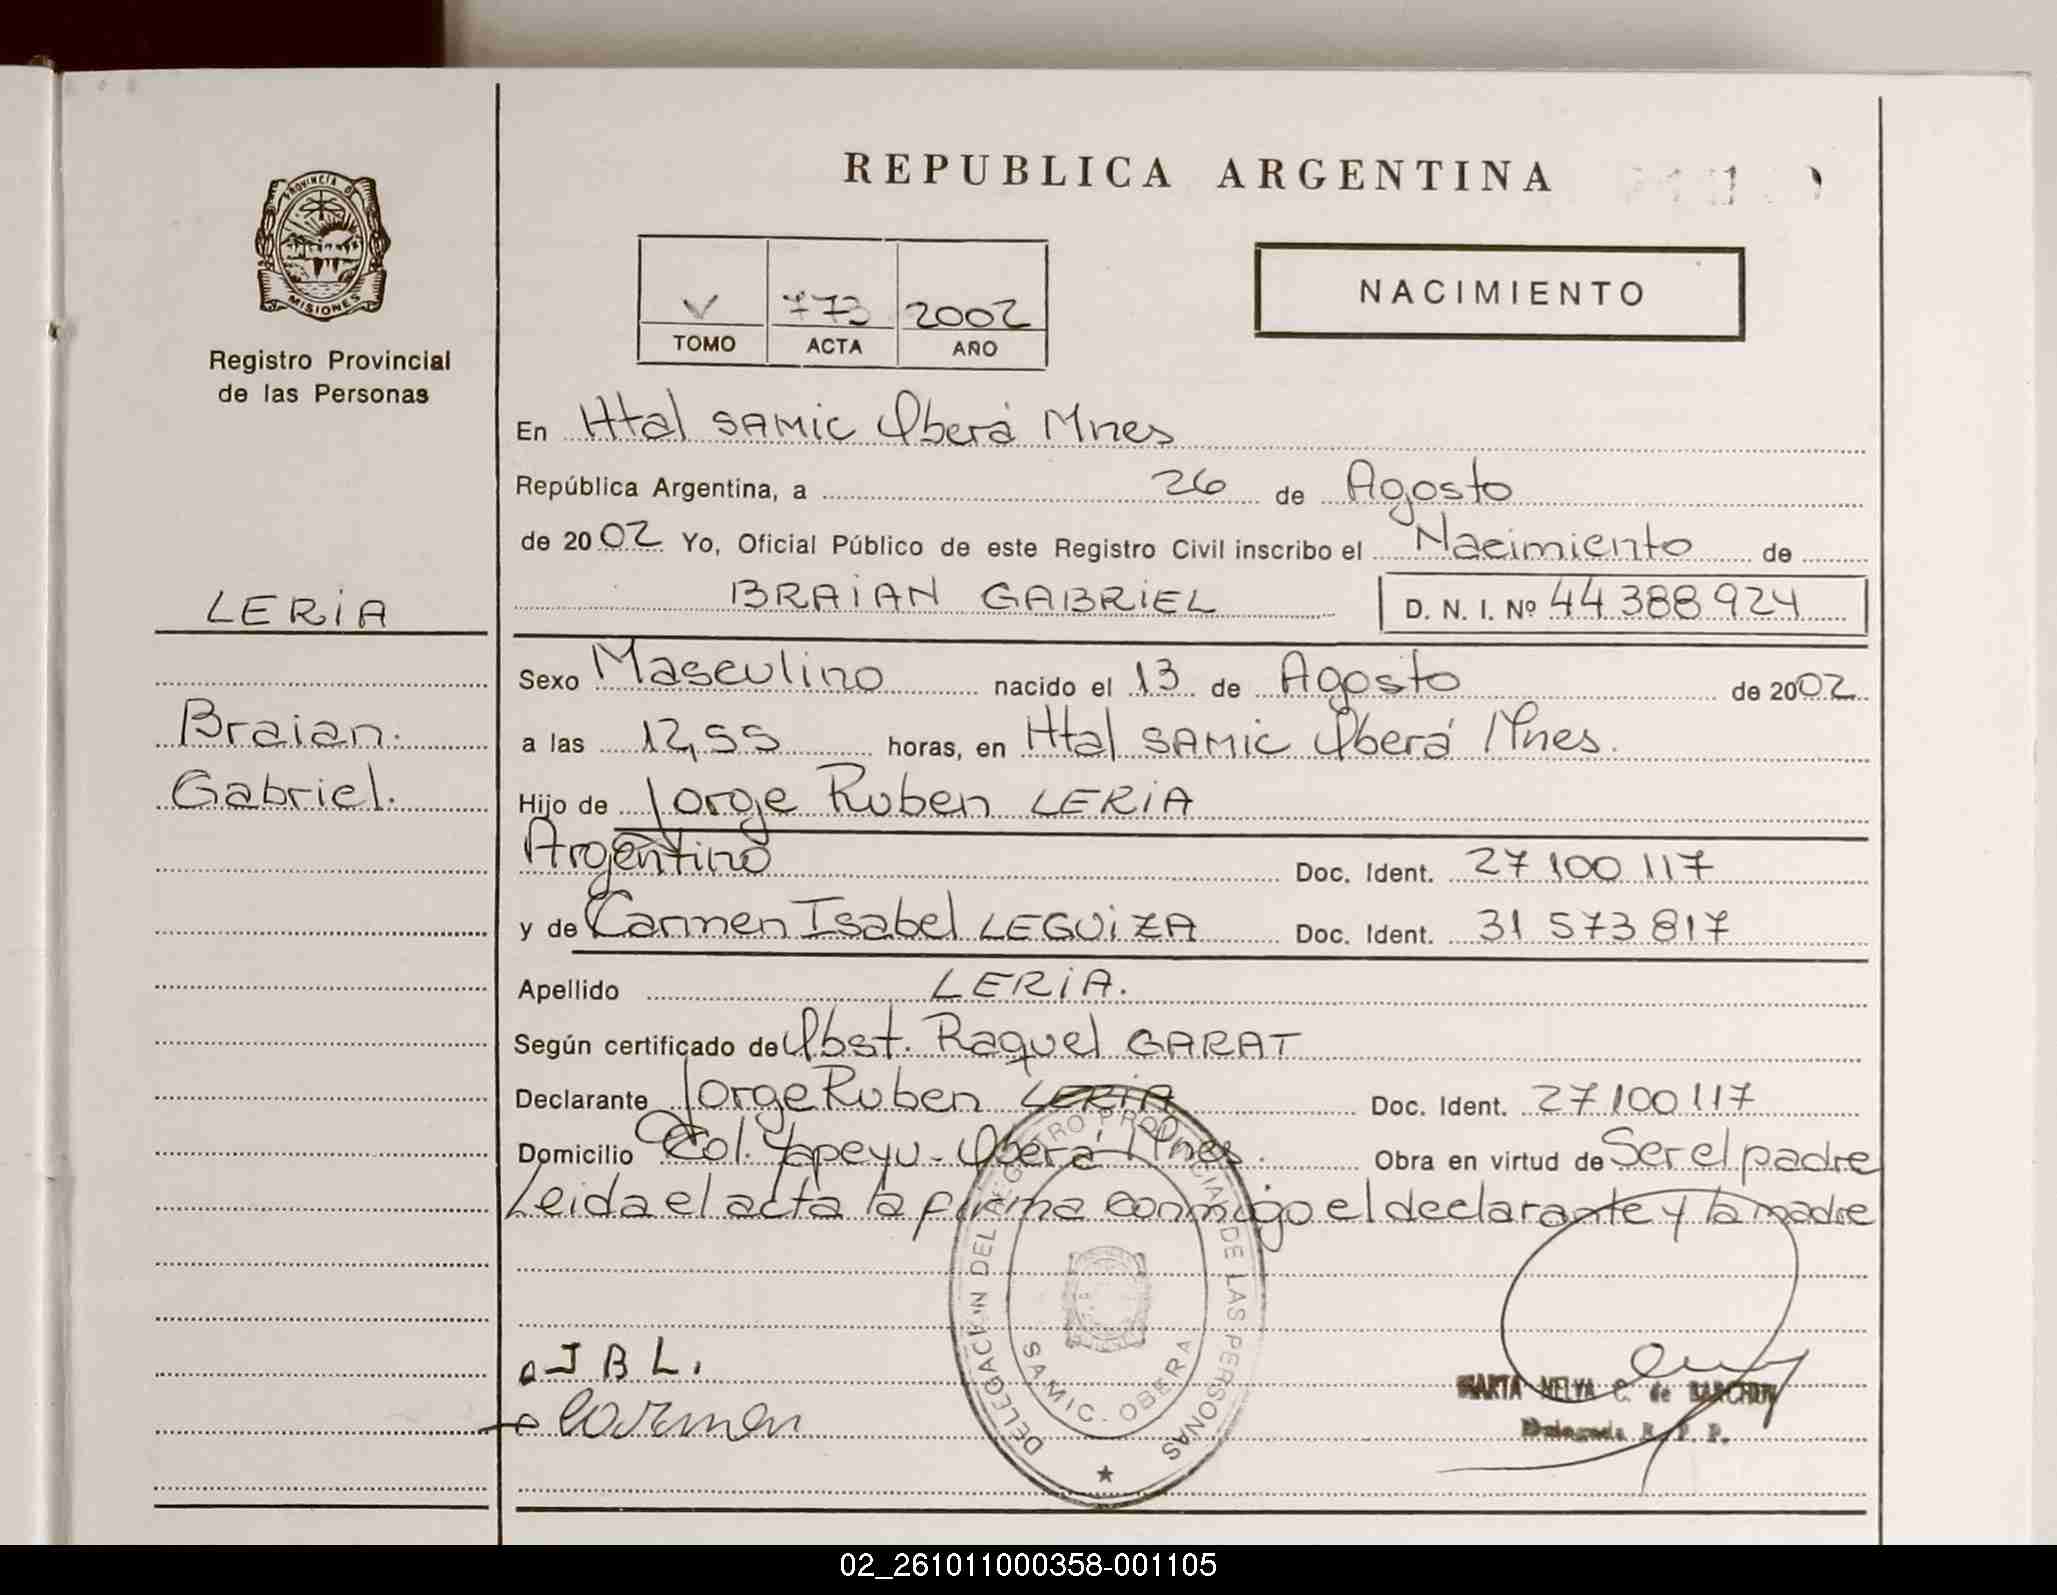 REPUBLICA ARGENTINA
PROVINCIA DE
MISIONES
Registro Provincial
de las Personas
NACIMIENTO
V 773 2002
TOMO ACTA AÑO
En Htal SAMIC Oberá Mnes
República Argentina, a 26 de Agosto
de 2002 Yo, Oficial Público de este Registro Civil inscribo el Nacimiento de
LERIA
BRAIAN GABRIEL D. N. I. Nº 44.388.924
Sexo Masculino nacido el 13 de Agosto de 2002
Braian.
Gabriel.
a las 12,55 horas, en Htal SAMIC Oberá Mnes.
Hijo de Jorge Ruben LERIA
Argentino Doc. Ident. 27 100 117
y de Carmen Isabel LEGUIZA Doc. Ident. 31 573 817
Apellido LERIA.
Según certificado de Obst. Raquel GARAT
Declarante Jorge Ruben LERIA Doc. Ident. 27 100 117
Domicilio Col. Yapeyu - Oberá Mnes. Obra en virtud de Ser el padre
Leida el acta la firma conmigo el declarante y la madre
DELEGACION DEL REGISTRO PROVINCIAL DE LAS PERSONAS
SAMIC. OBERA
J B L.
Carmen
MARTA NELVA C. de
Delegada R. P. P.
02_261011000358-001105